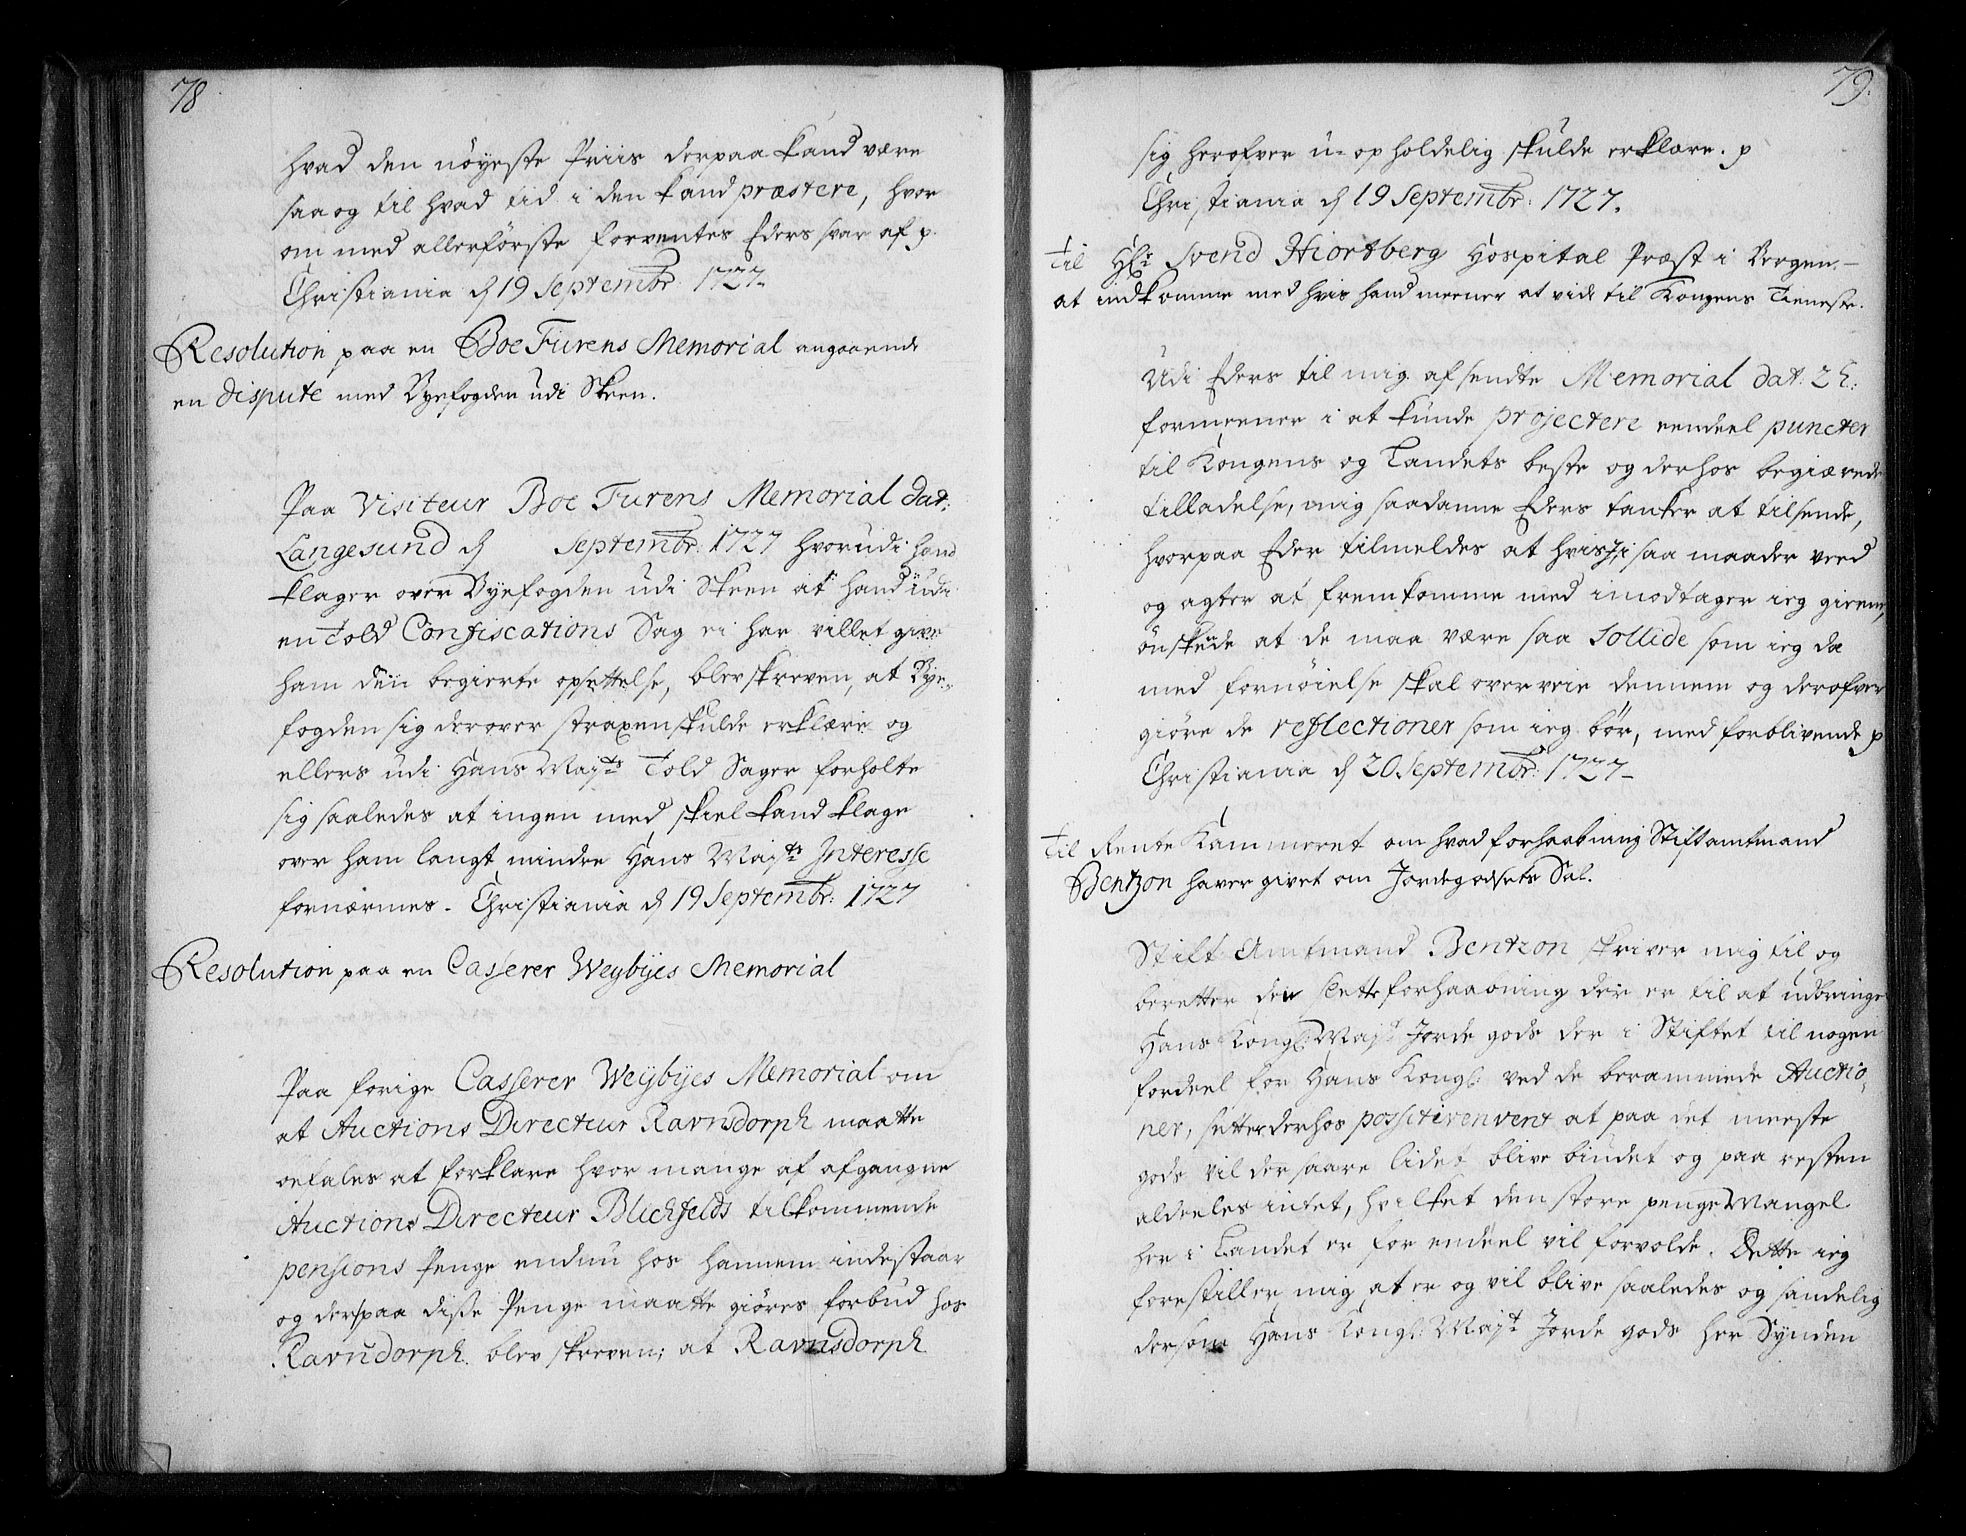 78
hvad den nöyeste Priis derpaa kand være
saa og til hvad tid i den kand præstere, hvor
om med allerförste forventes Eders svar af p.
Christiania d 19 Septembr: 1727
Resolution paa en Boe Furens Memorial angaaende
en dispute med Byefogden udi Skeen.
Paa Visiteur Boe Furens Memorial dat:
Langesund d Septembr: 1727 hvorudi hand
klager over Byefogden udi Skeen at hand udi
en Told Confiscations Sag ei har villet give
ham den begierte opsettelse, blev skreven, at Bye-
fogden sig derover straxen skulde erklære og
ellers udi Hans Mayts Told Sager forholte
sig saaledes at ingen med skiel kand klage
over ham langt mindre Hans Mayts Interesse
fornærmes. Christiania d 19 Septembr: 1727
Resolution paa en Casserer Weybyes Memorial
Paa forige Casserer Weybyes Memorial om
at Auctions Directeur Ravnsdorph maatte
befales at forklare hvor mange af afgangne
Auctions Directeur Blichfelds tilkommende
pensions Penge endnu hos hannem indestaar
og derpaa disse Penge maatte giöres forbud hos
Ravnsdorph. blev skreven; at Ravnsdorph
79.
sig herofver u-opholdelig skulde erklære. p
Christiania d 19 Septembr: 1727.
Til Hr Svend Hiortberg Hospital Præst i Bergen.
at indkomme med hvis hand meener at vide til Kongens Tieneste.
Udi Eders til mig afsendte Memorial dat: 2 h:
formeener i at kunde projectere eendeel puncter
til Kongens og Landets beste og derhos begiærede
tilladelse, mig saadanne Eders tanker at tilsende,
hvorpaa Eder tilmeldes at hvis I i saa maader veed
og agter at fremkomme med imodtager ieg gierne,
önskende at de maa være saa Sollide som ieg da
med fornöielse skal overveie dennem og derofver
giöre de reflectioner som ieg bör, med forblivende p
Christiania d 20 Septembr: 1727
Til Rente Kammeret om hvad forhaabning Stiftamtmand
Bentzon haver givet om Jordegodsets Sal.
Stift Amtmand Bentzon skriver mig til og
beretter den slette forhaabning der er til at udbringe
Hans Kongl: Mayt Jorde gods der i Stiftet til nogen
fordeel for Hans Kongl: ved de berammede Auctio-
ner, setter derhos possitive at paa det meeste
gods vil der saare lidet blive bündet og paa resten
aldeeles intet, hvilket den store penge Mangel
her i Landet er for endeel vil forvolde. Dette ieg
forestiller mig at er og vil blive saaledes og sandelig
dersom Hans Kongl: Mayt Jorde gods her Synden